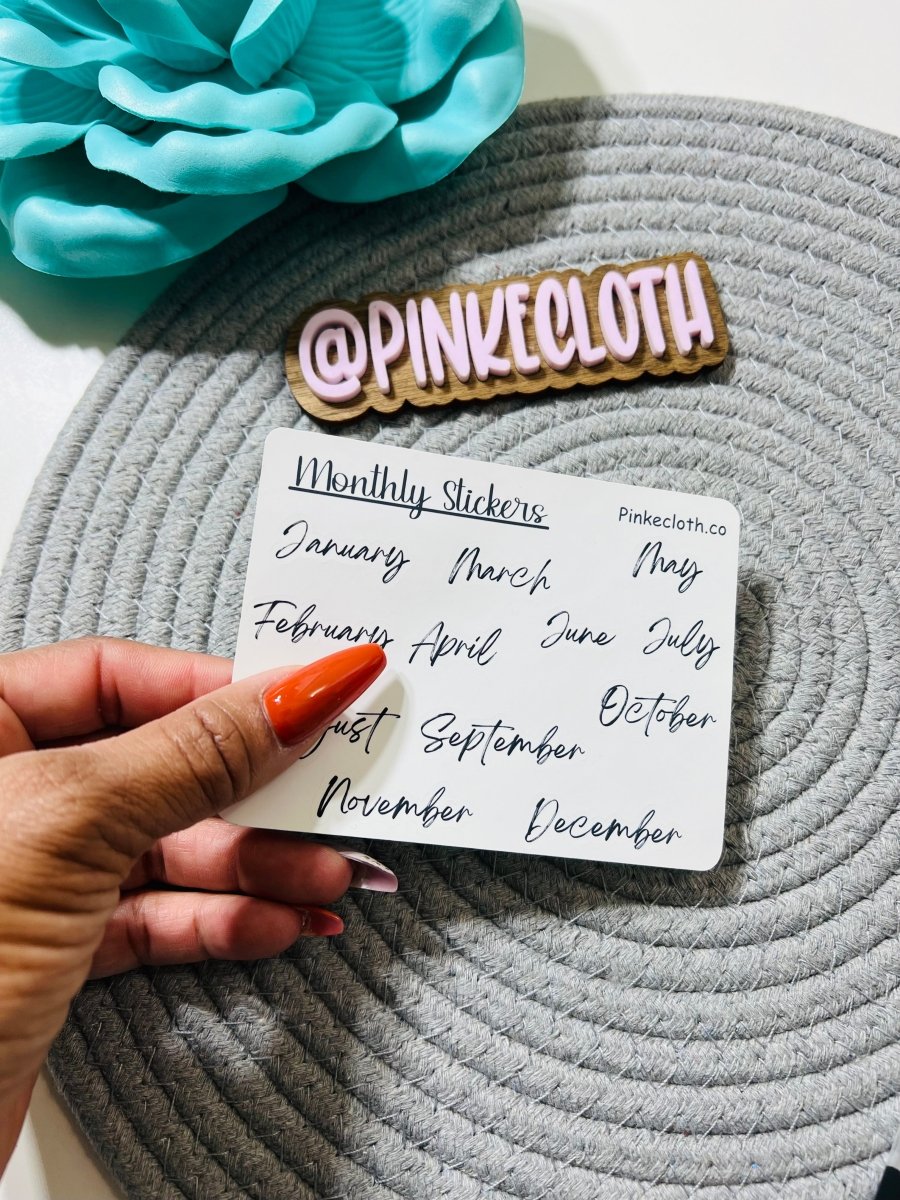 @PINKECLOTH
Monthly Stickers
Pinkecloth.co
January March May
February April June July
gust September October
November December